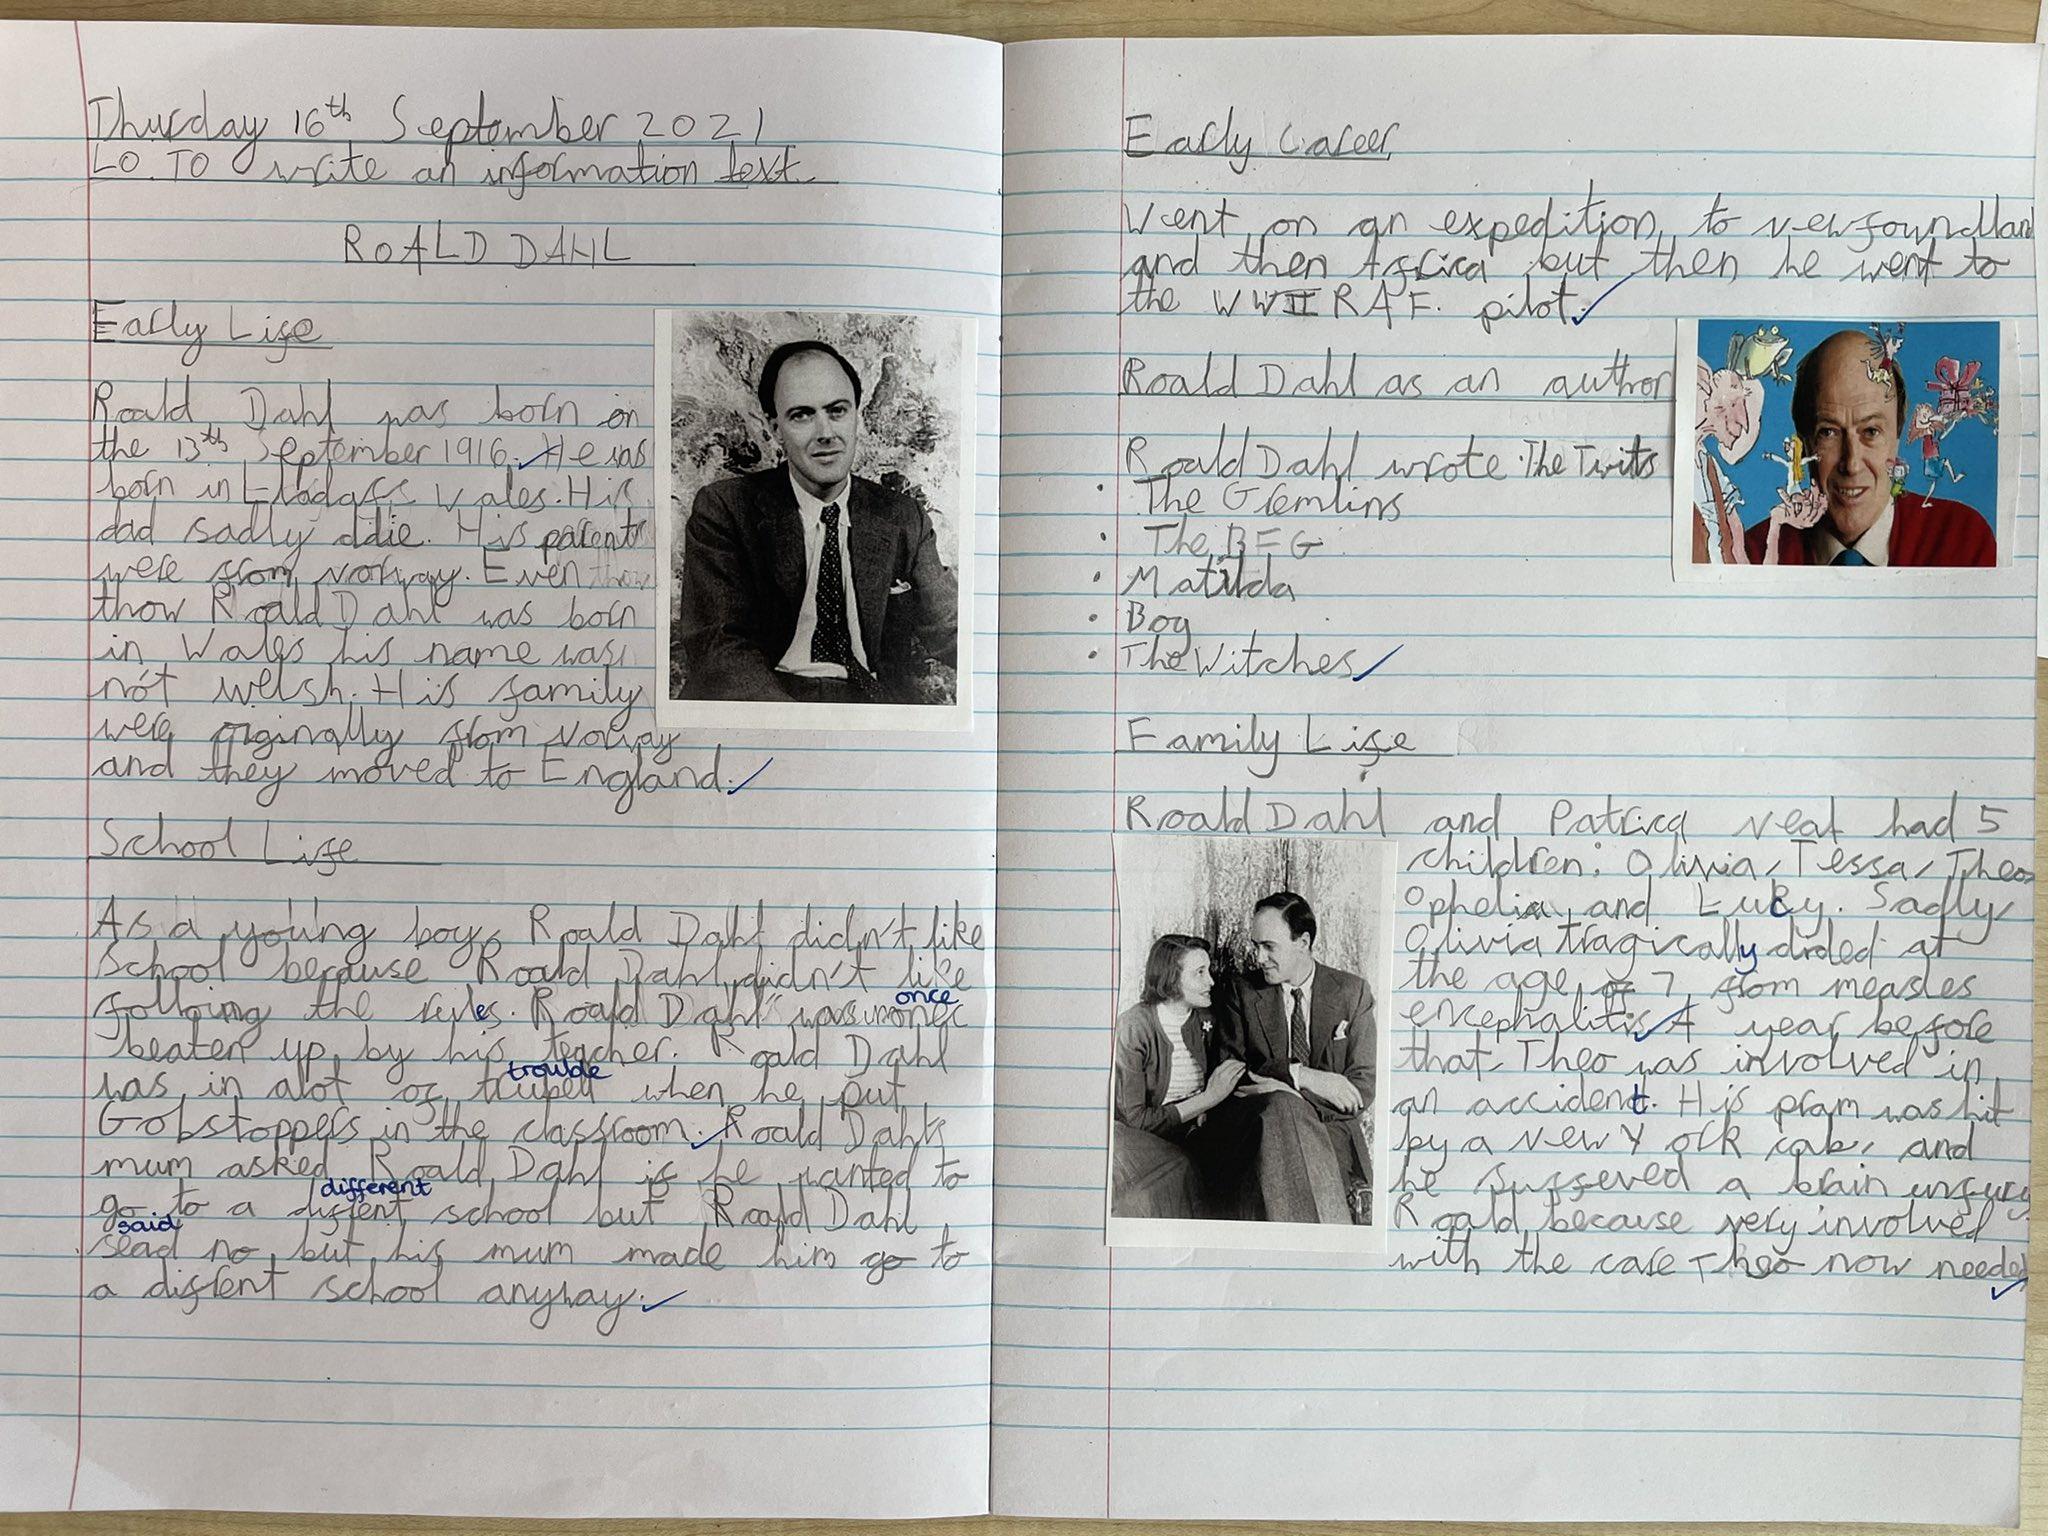 Thursday 16th September 2021
LO. TO write an information text.
ROALD DAHL
Early Life
Roald Dahl was born on
the 13th September 1916. He was
born in Wales. His
dad sadly ddie. His parents
were from Norway. Even thow
thow Roald Dahl was born
in Wales his name was
not welsh. His family
were originally from Norway
and they moved to England.
School Life
As a young boy, Roald Dahl didn't like
School because Roald Dahl didn't like
once
folloing the rules. Roald Dahl was
beaten up by his teacher. Roald Dahl
trouble
was in alot of trubell when he put
Gobstoppers in the classroom. Roald Dahls
mum asked Roald Dahl if he wanted to
different
go to a diffent school but Roald Dahl
said
sead no but his mum made him go to
a diffent school anyway.
Early Career
Went on an expedition to Newfoundland
and then Africa but then he went to
the WWII RAF. pilot.
Roald Dahl as an author
Roald Dahl wrote • The Twits
• The Gremlins
• The BFG
• Matilda
• Boy
• The Witches
Family Life
Roald Dahl and Patrica Neal had 5
children: Olivia, Tessa, Theo,
Ophelia and Lucy. Sadly,
Olivia tragically dided at
the age of 7 from measles
encephalitis. A year before
that Theo was involved in
an accident. His pram was hit
by a New York cab, and
he suffeved a brain unfury
Roald because very involved
with the care Theo now needed